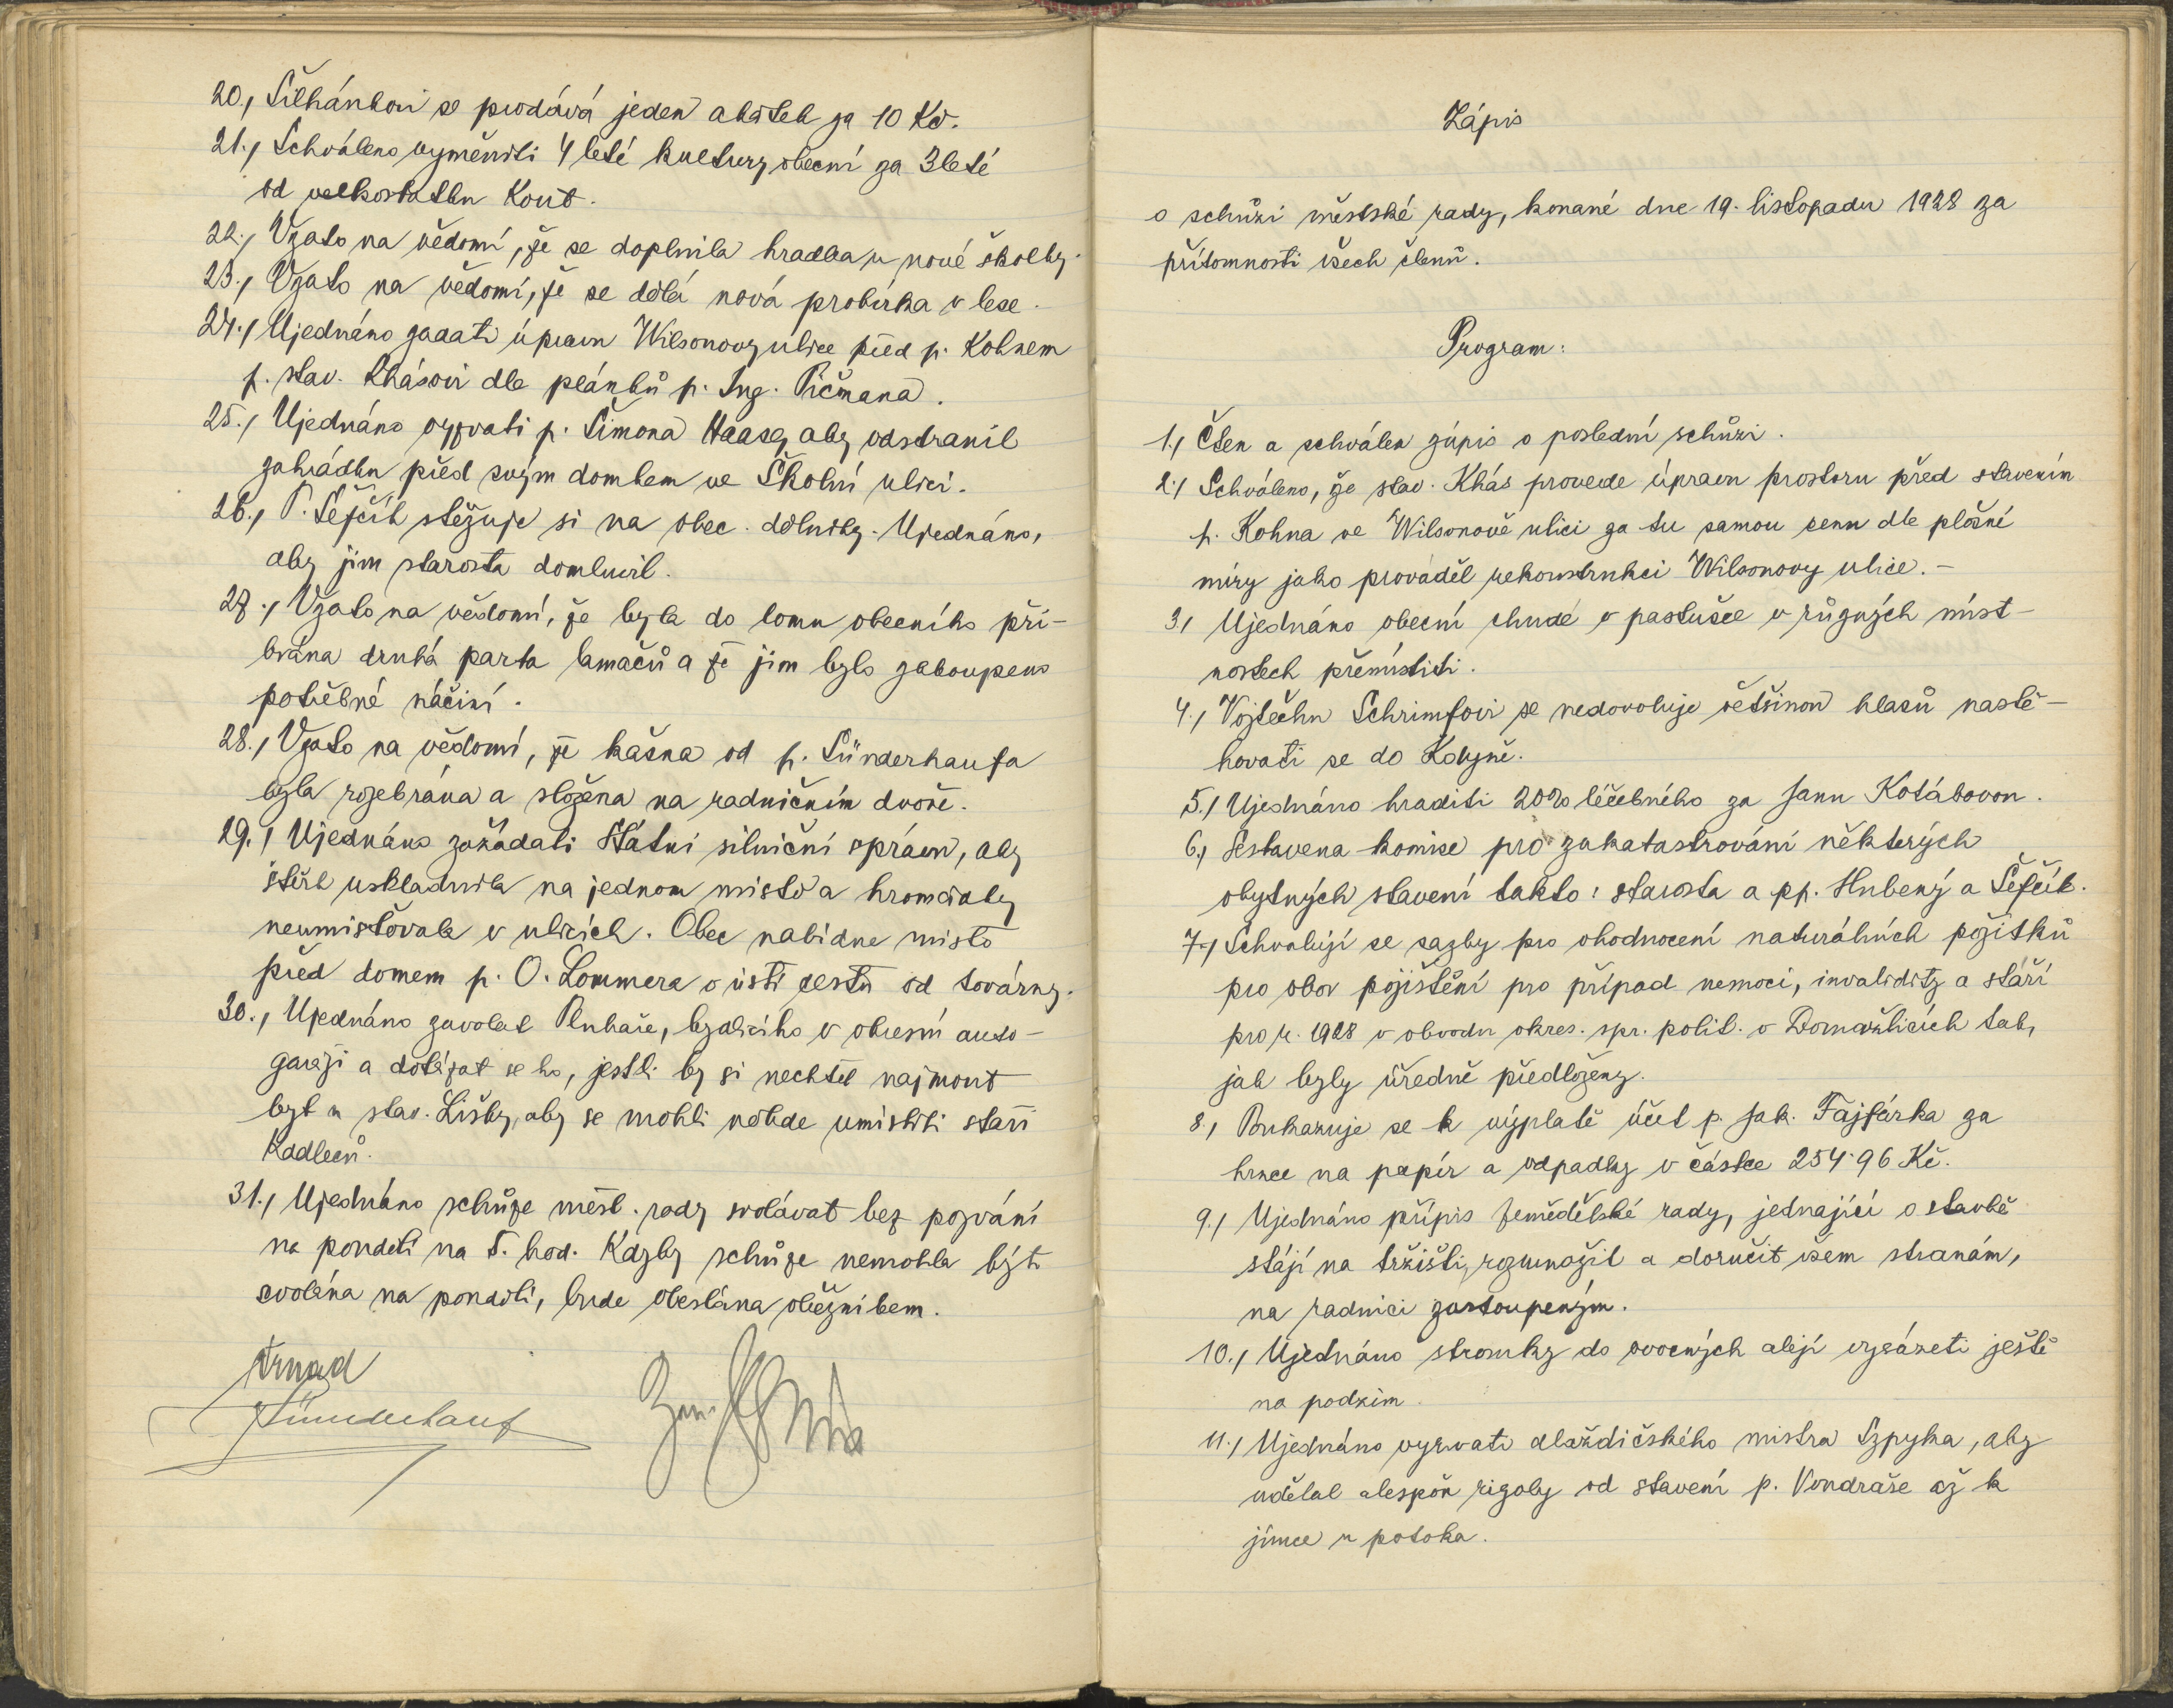 20., Šilhánkovi se prodává jeden akátek za 10 Kč.
21., Schváleno vyměniti 4 leté kultury obecní za 3leté
od velkostatku Kout.
22., Vzato na vědomí, že se doplnila hradba u nové školky.
23., Vzato na vědomí, že se dělá nová probírka v lese.
24., Ujednáno zadati úpravu Wilsonovy ulice před p. Kohnem
p. stav. Khásovi dle plánků p. Ing. Pičmana.
25., Ujednáno vyzvati p. Šimona Haase, aby odstranil
zahrádku před svým domkem ve Školní ulici.
26., P. Šefčík stěžuje si na obec. dělníky. Ujednáno,
aby jim starosta domluvil.
27., Vzato na vědomí, že byla do lomu obecního při-
brána druhá parta lamačů a že jim bylo zakoupeno
potřebné náčiní.
28., Vzato na vědomí, že kašna od p. Sünderhaufa
byla rozebrána a složena na radničním dvoře.
29., Ujednáno zažádati Státní silniční správu, aby
štěrk uskladnila na jednom místě a hromádky
neumisťovala v ulicích. Obec nabídne místo
před domem p. O. Lommera v ústí cesty od továrny.
30., Ujednáno zavolat Pluhaře, bydlícího v okresní auto-
garáži a dotázat se ho, jestli by si nechtěl najmout
byt u stav. Lišky, aby se mohli někde umístiti staří
Kadleců.
31., Ujednáno schůze měst. rady svolávat bez pozvání
na pondělí na 5. hod. Kdyby schůze nemohla býti
svolána na pondělí, bude obeslána oběžníkem.
Sünderhauf
Zápis
o schůzi městské rady, konané dne 19. listopadu 1928 za
přítomnosti všech členů.
Program:
1., Čten a schválen zápis o poslední schůzi.
2., Schváleno, že stav. Khás provede úpravu prostoru před stavením
p. Kohna ve Wilsonově ulici za tu samou cenu dle plošné
míry jako prováděl rekonstrukci Wilsonovy ulice.-
3., Ujednáno obecní chudé v pastušce v různých míst-
nostech přemístiti.
4., Vojtěchu Schrimfovi se nedovoluje většinou hlasů nastě-
hovati se do Kdyně.
5., Ujednáno hraditi 20% léčebného za Janu Kotábovou.
6., Sestavena komise pro zakatastrování některých
obytných stavení takto: starosta a pp. Hubený a Šefčík.
7., Schvalují se sazby pro ohodnocení naturálních požitků
pro obor pojištění pro případ nemoci, invalidity a stáří
pro r. 1928 v obvodu okres. spr. polit. v Domažlicích tak,
jak byly úředně předloženy.
8., Poukazuje se k výplatě účet p. Jak. Fajfárka za
hrnce na papír a odpadky v částce 254·96 Kč.
9., Ujednáno přípis Zemědělské rady, jednající o stavbě
stájí na tržišti, rozmnožit a doručit všem stranám,
na radnici zastoupeným.
10., Ujednáno stromky do ovocných alejí vysázeti ještě
na podzim.
11., Ujednáno vyzvati dlaždičského mistra Szpyka, aby
udělal alespoň rigoly od stavení p. Vondraše až k
jímce u potoka.